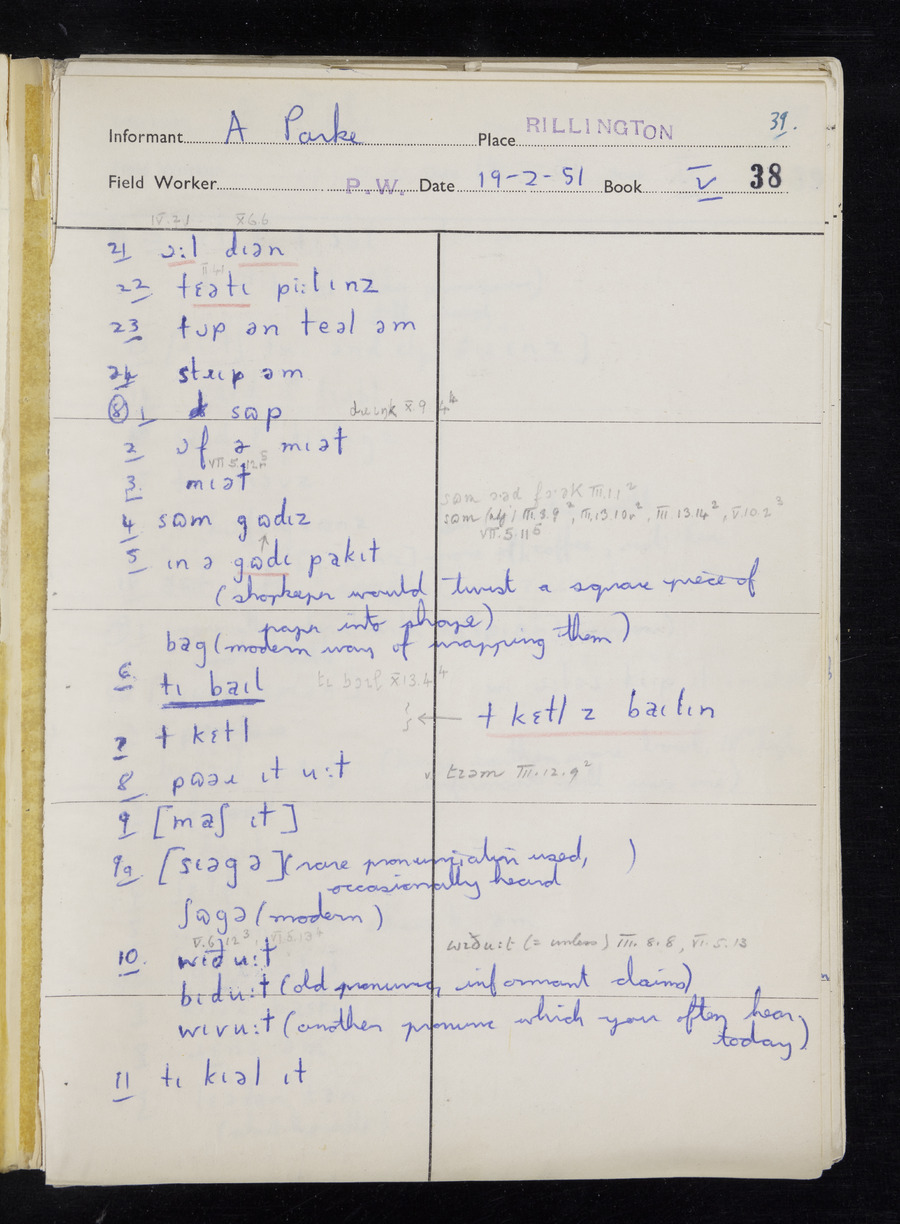 39.
Informant A Parke Place RILLINGTON
Field Worker P.W. Date 19-2-51 Book V 38
IV.21 X6.6
21 ɔ:l dɪən
II 41
22 tɛətɪ pi:lɪnz
23 tʊp ən teəl əm
24 əm
⑧ 1 sʊp drɪnk X.9 4⁴
2 ɒf ə mɪət
VII 5.12⁵
3. mɪət
sʊm III.11²
4 sʊm gʊdɪz sʊm (adj) III.3.9², III.13.10², III 13.14², V.10.2³
VII.5.11⁶
5 ɪn ə gʊdɪ pakɪt
(shopkeeper would twist a square piece of
paper into shape)
bag (modern way of wrapping them)
6. tɪ baɪl X13.4⁴
← t kɛtl z baɪlɪn
7 t kɛtl
8 ɪt u:t v. III.12.9²
9 [maʃ ɪt]
9a. [sɪəgə] (rare pronunciation used, )
occasionally heard
ʃʊgə (modern)
V.6.12³, VI.5.13
10. wɪðu:t wɪðu:t (= unless) III. 8.8, VI.5.13
bɪdu:t (old pronunc, informant claims)
wɪvu:t (another pronunc which you often hear
today)
11 tɪ kɪəl ɪt